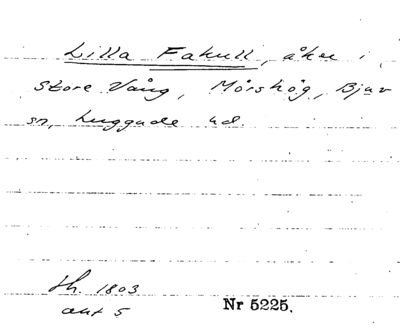 Lilla Fakull, åker i
Store Vång, Mörshög, Bjuv
sn, Luggude hd.
h. 1803
akt 5
Nr 5225.